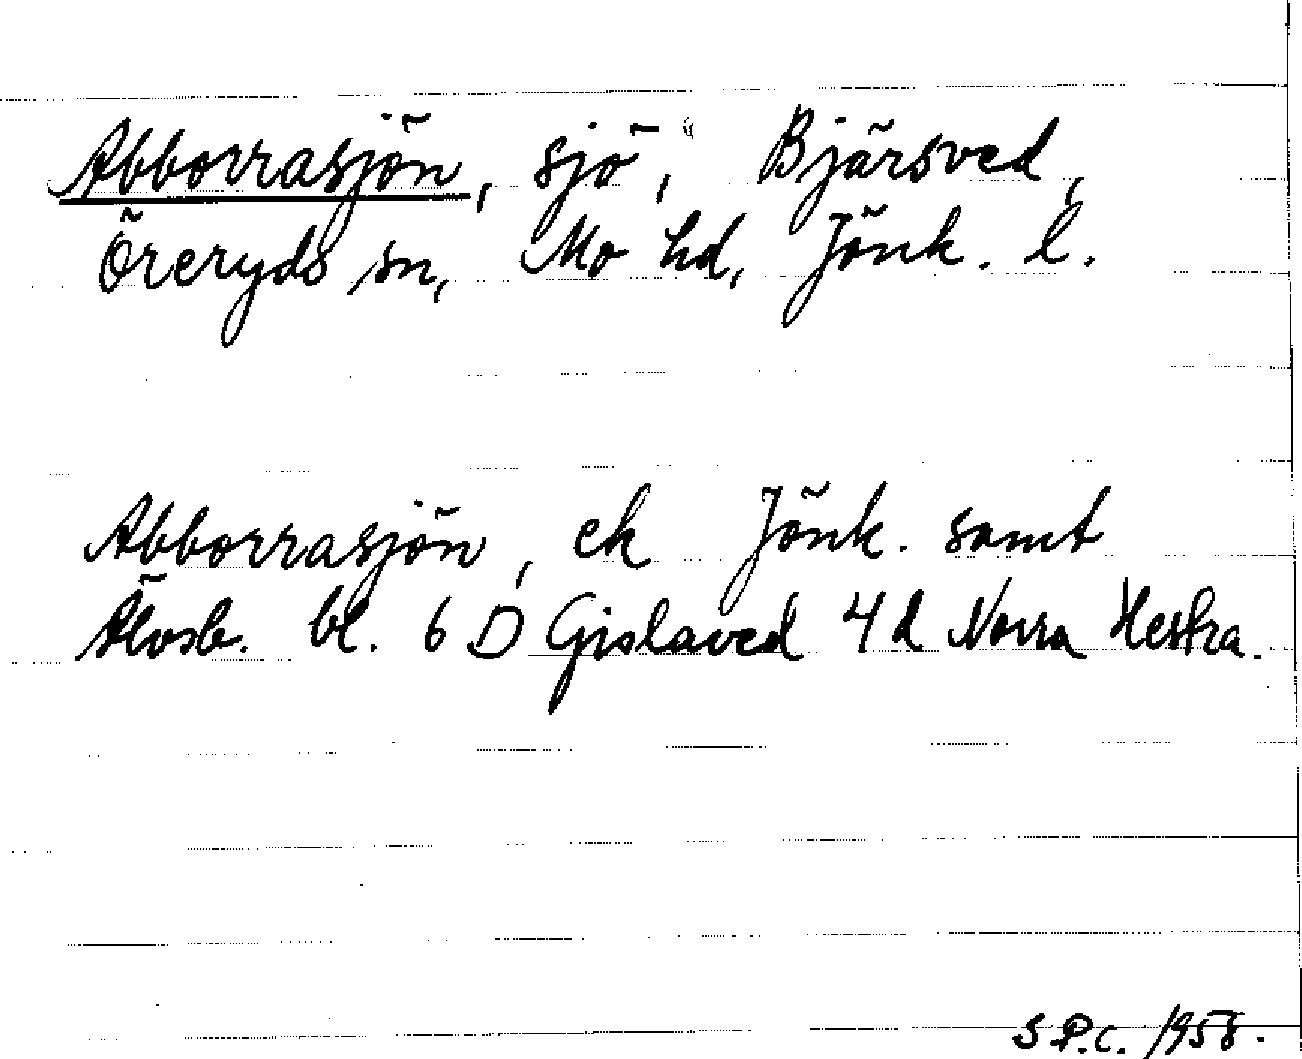 Abborrasjön, sjö, Bjärsved,
Öreryds sn, Mo hd, Jönk. l.
Abborrasjön, ek Jönk. samt
Älvsb. bl. 6 D Gislaved 4d Norra Hestra.
S.P.C. 1958.